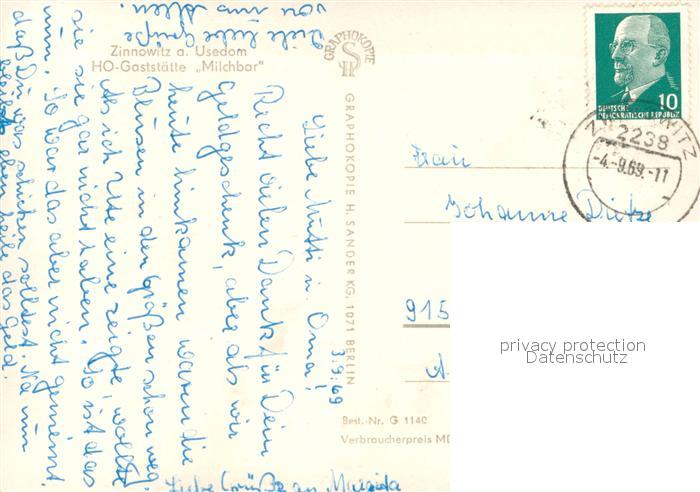 Zinnowitz a. Usedom
HO-Gaststätte „Milchbar"
GRAPHOKOPIE
GRAPHOKOPIE H. SANDER KG, 1071 BERLIN
3.9.69
Liebe Mutti u. Oma!
Recht vielen Dank für Dein
Geldgeschenk, aber als wir
heute hinkamen waren die
Blusen in den Größen schon weg.
Als ich Ute eine zeigte, wollte
sie sie gar nicht haben. So ist das
nun. So war das aber nicht gemeint
daß Du was schicken solltest. Na nun
eben das Geld.
Viele liebe Grüße
von uns Allen.
Liebe Grüße an
DEUTSCHE
DEMOKRATISCHE REPUBLIK
10
2238
-4.-9.69.-11
Frau
Johanne Dietze
915
Best.-Nr. G 1140
Verbraucherpreis MD
privacy protection
Datenschutz